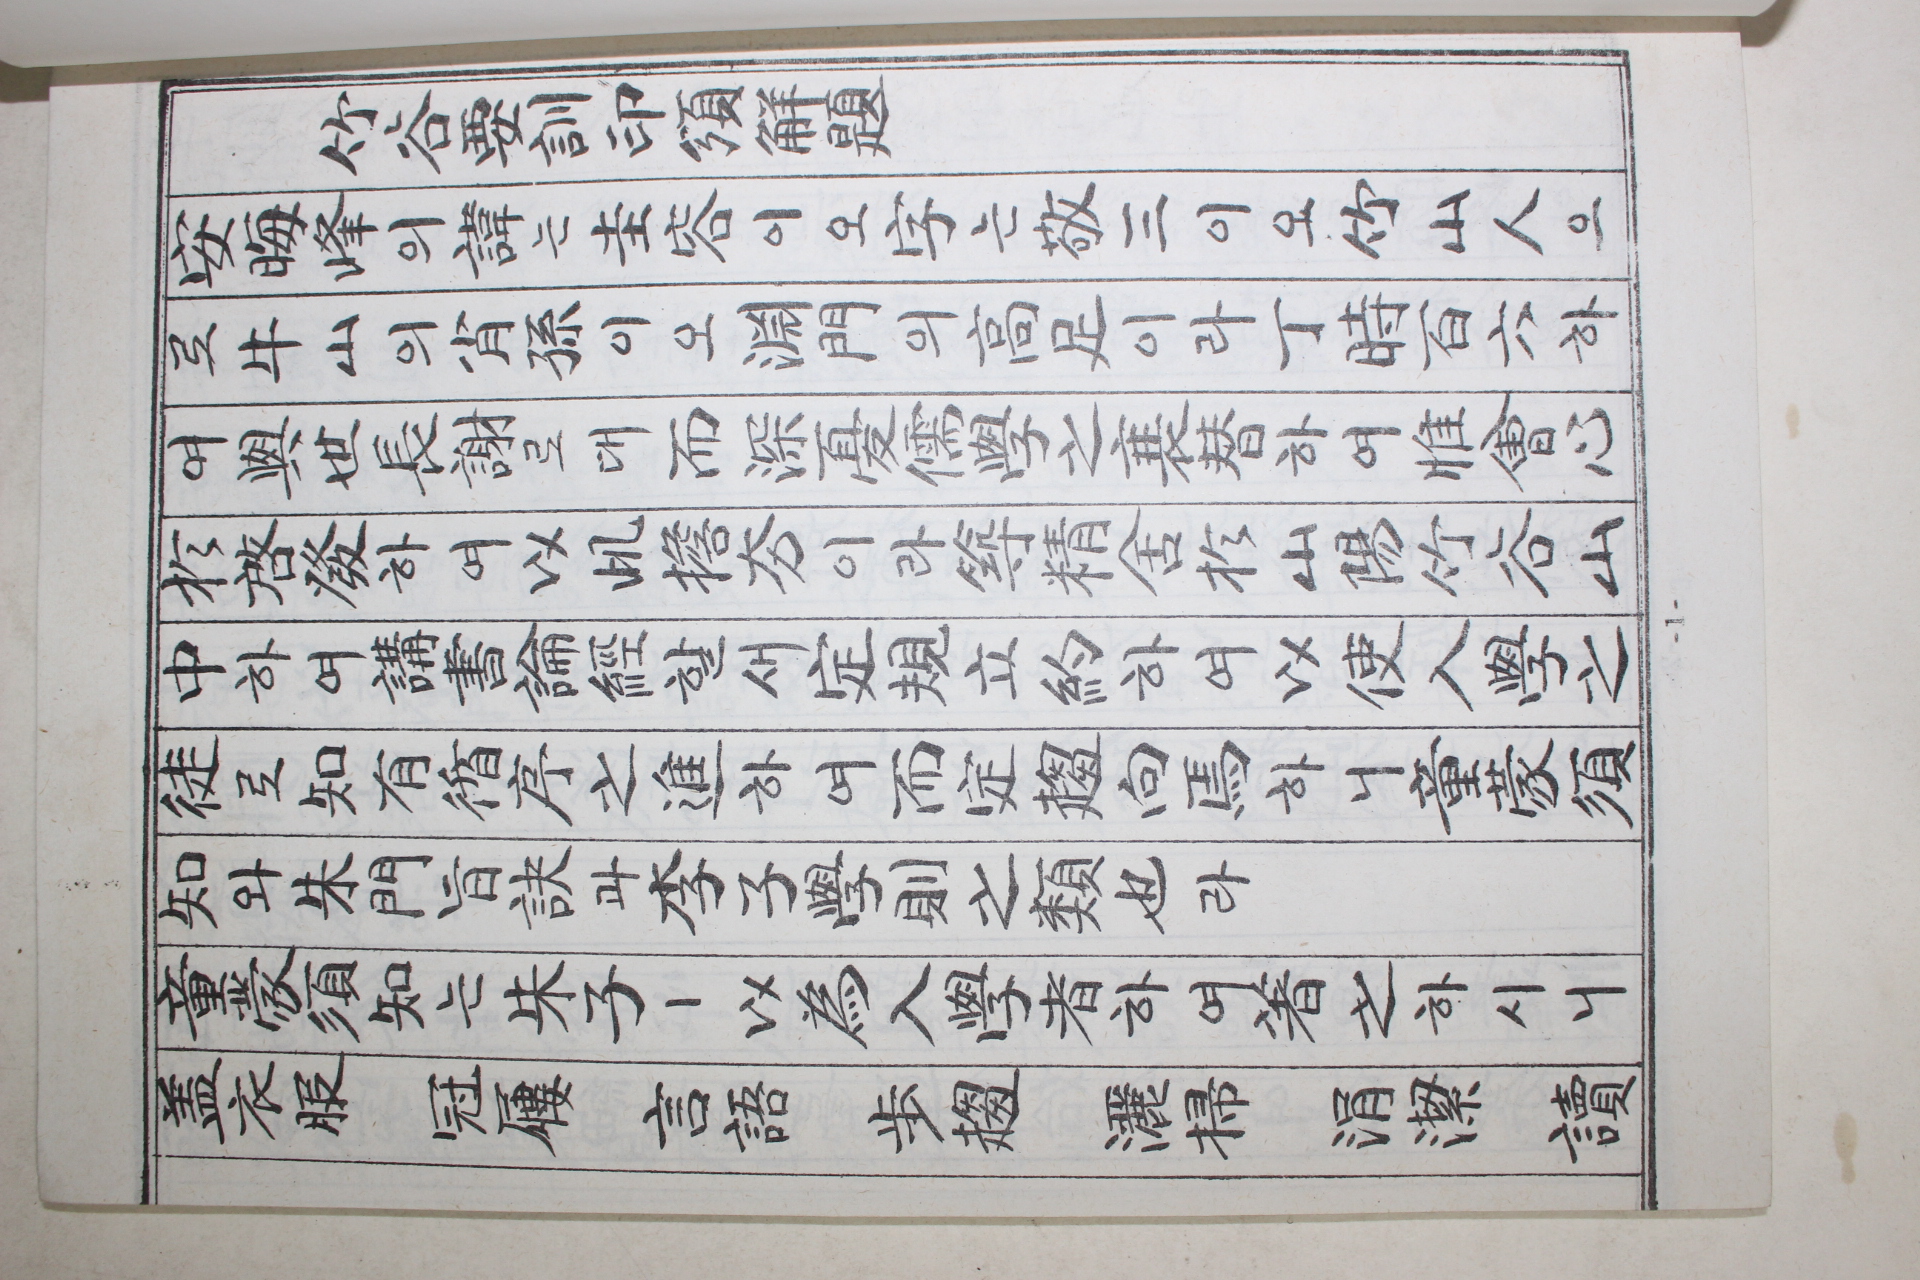 竹谷要訓印頒解題
安晦峰의諱는圭容이오字는敬三이오竹山人으
로牛山의肖孫이오淵門의高足이라丁時百六하
여與世長謝로대而深憂儒學之衰替하여惟會心
於啓發하여以此擔夯이라築精舍於山陽竹谷山
中하여講書論經할새定規立約하여以使入學之
徒로知有循序之進하여而定趨向焉하니童蒙須
知와朱門旨訣과李子學則之類也라
童蒙須知는朱子ㅣ以爲入學者하여著之하시니
蓋衣服 冠屨 言語 步趨 灑掃 涓潔 讀
-1-